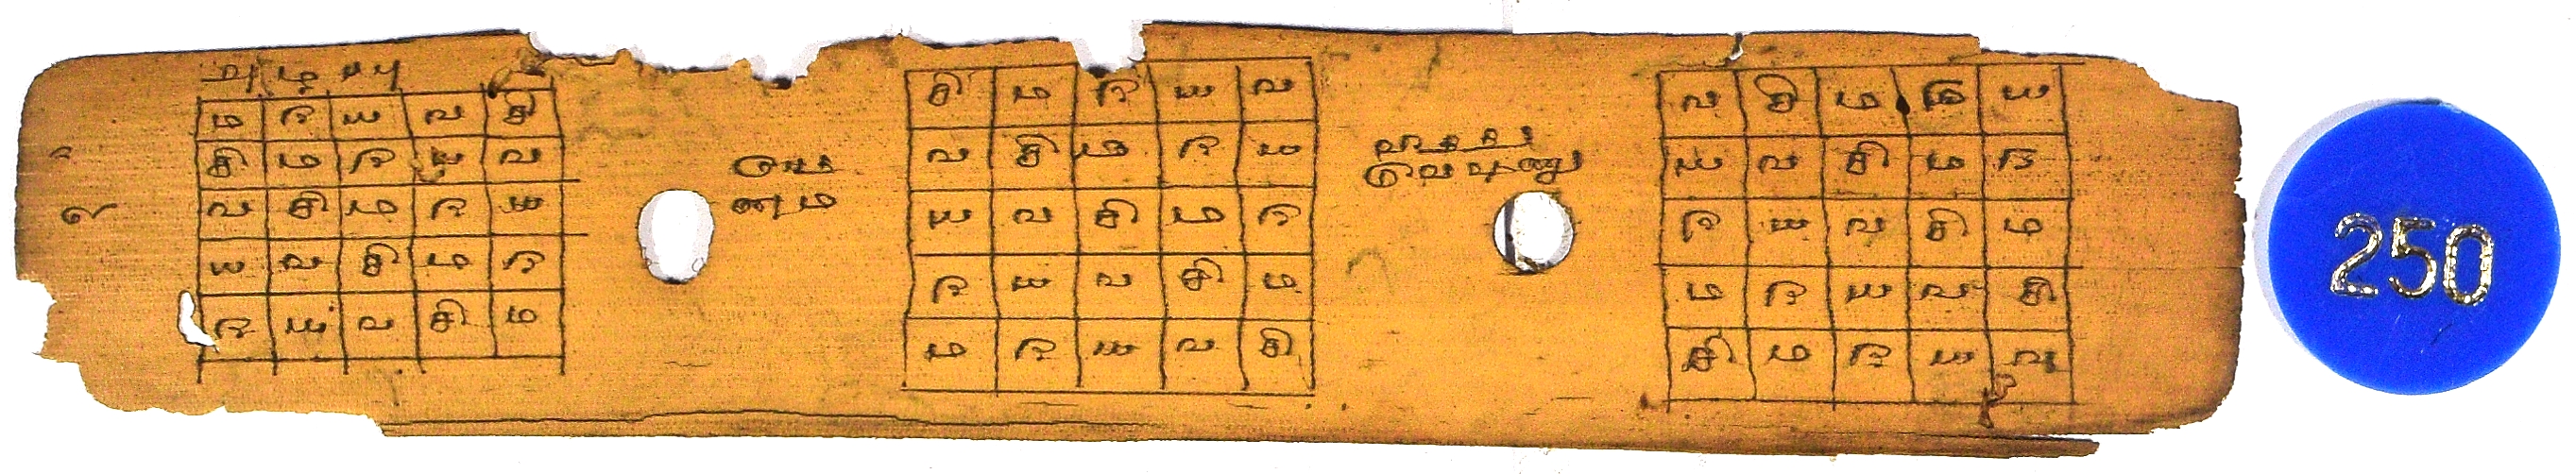 ம ந ய வ சி
சி ம ந ய வ
வ சி ம ந ய
ய வ சி ம ந
ந ய வ சி ம
சி ம ந ய வ
வ சி ம ந ய
ய வ சி ம ந
ந ய வ சி ம
ம ந ய வ சி
வ சி ம ந ய
ய வ சி ம ந
ந ய வ சி ம
ம ந ய வ சி
சி ம ந ய வ
250